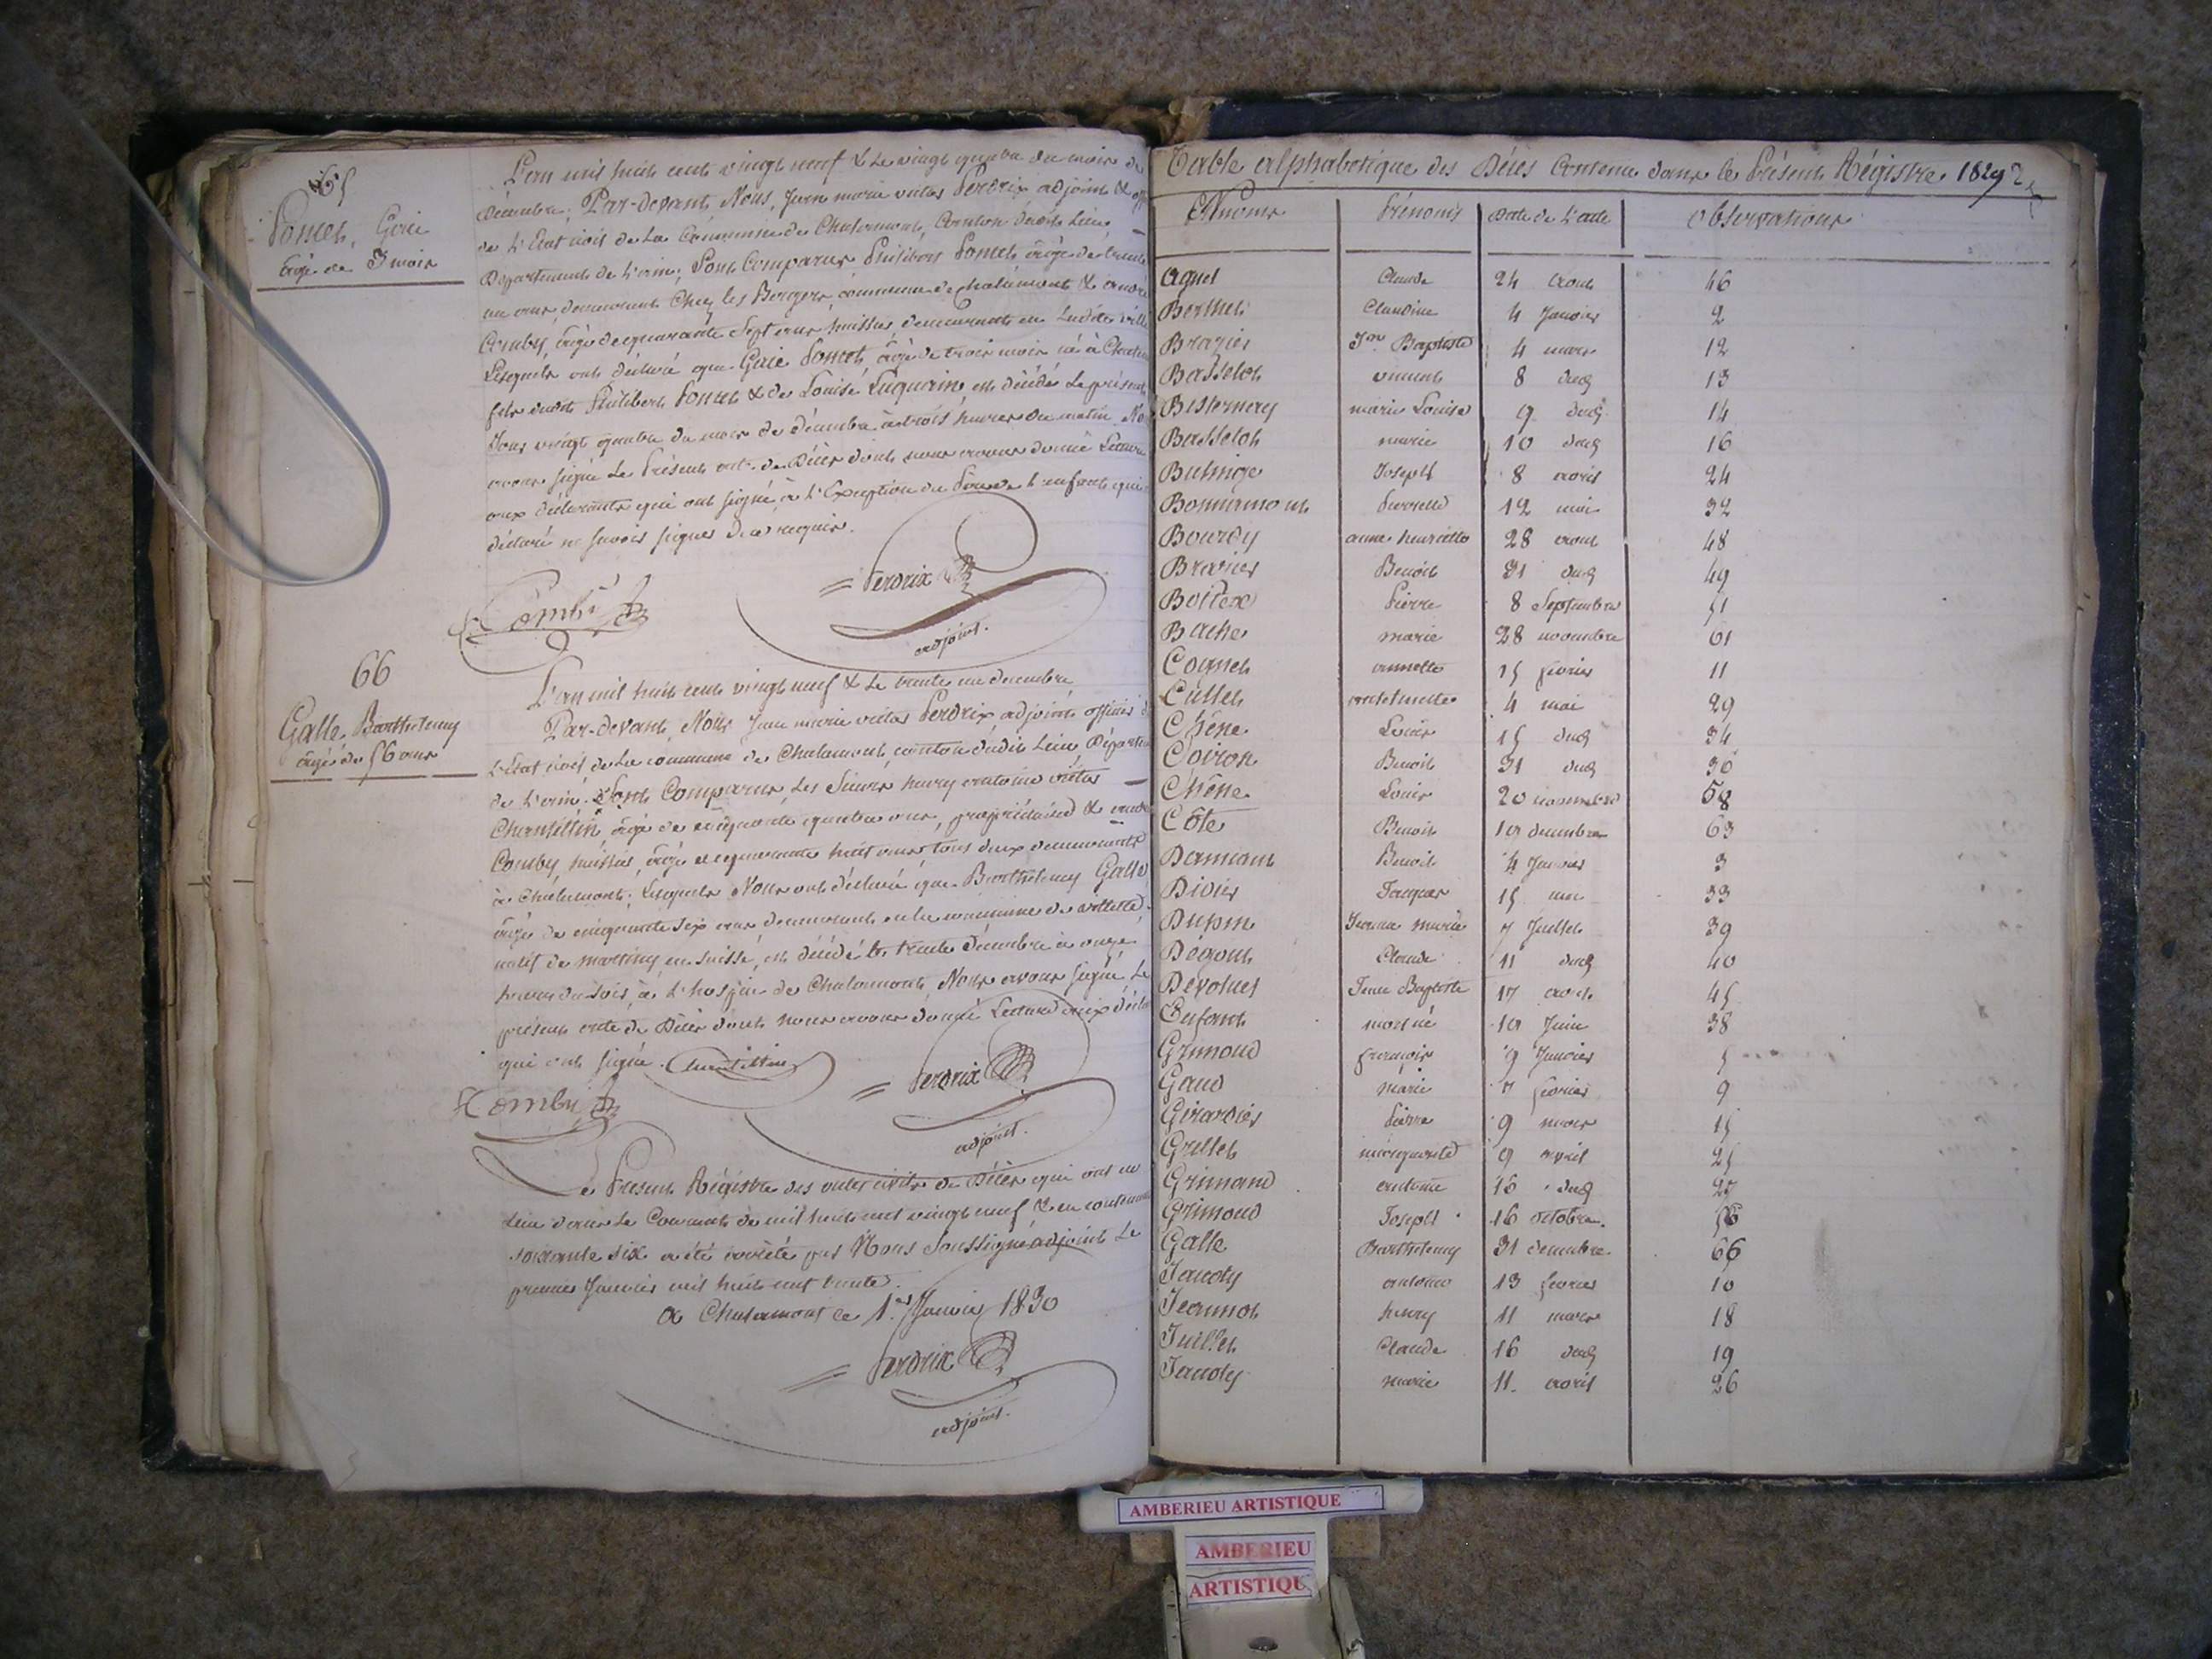 65
Pomet, Gaie
âgé de 3 mois
L'an mil huit cent vingt neuf & le vingt quatre du mois de
décembre, Par-devant Nous, Jean marie victor Perdrix adjoint & off
de l'Etat civil de la Commune de Chalamont, Canton dudit Lieu,
Département de l'ain; Sont Comparus Philibert Pomet âgé de trente
un ans, demeurant Chez les Bergers, commune de chalamont & andré
Comby, âgé de quarante Sept ans huissier, demeurant en Ladite ville
Lesquels ont déclaré que Gaie Pomet, âgé de trois mois né à Chalam
fils dudit Philibert Pomet & de Louise est décédé Le présent
Jour vingt quatre du mois de décembre à trois heures du matin. No
avons signé Le Présent acte de Décès dont nous avons donné Lecture
aux déclarants qui ont signé, à l'Exception du Père de l'enfant qui
déclaré ne savoir signer de ce requis.
Combi
Perdrix
adjoint.
66
Galle, Barthelemy
âgé de 56 ans
L'an mil huit cent vingt neuf & Le trente un decembre
Par-devant, Nous Jean marie victor Perdrix adjoint officier d
L'Etat civil de La commune de Chalamont, canton dudit Lieu, Départem
de L'ain. Sont Comparus, Les Sieurs henry antoine victor
Chantillin âgé de cinquante quatre ans, propriétaire & andré
Comby, huissier, âgé de quarante huit ans tous deux demeurants
à Chalamont; Lesquels Nous ont déclaré que Barthelemy Galle
âgé de cinquante six ans demeurant en la commune de villette
natif de martiny en suisse, est décédé le trente décembre à onze
heures du soir, à L'hospice de Chalamont, Nous avons signé Le
présent acte de Décès dont nous avons donné Lecture aux décla
qui ont signé. Chantillin
Combi
Perdrix
adjoint.
Le Présent Régistre des actes civils de Décès qui ont eu
Lieu dans Le Courant de mil huit cent vingt neuf & en contenant
soixante six a été arrêté par Nous Soussigné adjoint Le
premier Janvier mil huit cent trente.
A Chalamont ce 1er Janvier 1830
Perdrix
adjoint.
Table alphabetique des Décès Contenu dans le Présent Régistre. 1829
Noms Prénoms Date de L'acte Observations
Agnel Claude 24 aout 46
Berthet Claudine 4 Janvier 2
Brazier Jn Baptiste 4 mars 12
Basselot vincent 8 dud 13
Bisternay marie Louise 9 dud 14
Basselot marie 10 dud 16
Joseph 8 avril 24
Bonnamont Pierrette 12 mai 32
Bourdy anne henriette 28 aout 48
Bravier Benoit 31 dud 49
Pierre 8 Septembre 51
Bache marie 28 novembre 61
Cognet annette 15 fevrier 11
Cullet 4 mai 29
Chêne Louis 15 dud 34
Coiron Benoit 31 dud 36
Chêne Louis 20 novembre 58
Côte Benoit 10 decembre 63
Damians Benoit 4 Janvier 3
Didier Jacques 15 mai 33
Dupin Jeanne Marie 7 Juillet 39
Dégout Claude 11 dud 40
Devoluet Jean Baptiste 17 aout 45
Enfant mort né 10 Juin 38
Grimoud francois 9 Janvier 5
Gaud marie 7 fevrier 9
Girardier Pierre 9 mars 15
Grillet marguerite 9 avril 25
Grimand antoine 16 dud 27
Grimoud Joseph 16 octobre. 56
Galle Barthelemy 31 decembre 66
Jandty antoine 13 fevrier 10
Jeannot henry 11 mars 18
Juillet Claude 16 dud 19
Jandty marie 11. avril 26
AMBERIEU ARTISTIQUE
AMBERIEU
ARTISTIQU